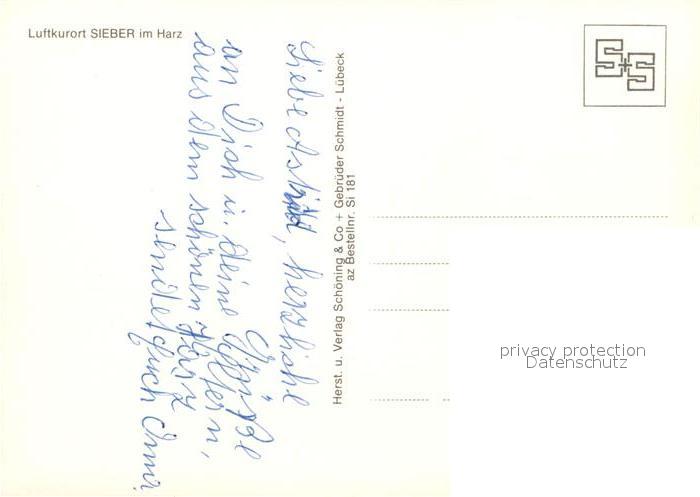 Luftkurort SIEBER im Harz
S+S
Liebe Astrid, herzliche
Grüße
an Dich u. deine Eltern,
aus dem schönen Harz
sendet Euch
Herst. u. Verlag Schöning & Co + Gebrüder Schmidt - Lübeck
az Bestellnr. Si 181
privacy protection
Datenschutz